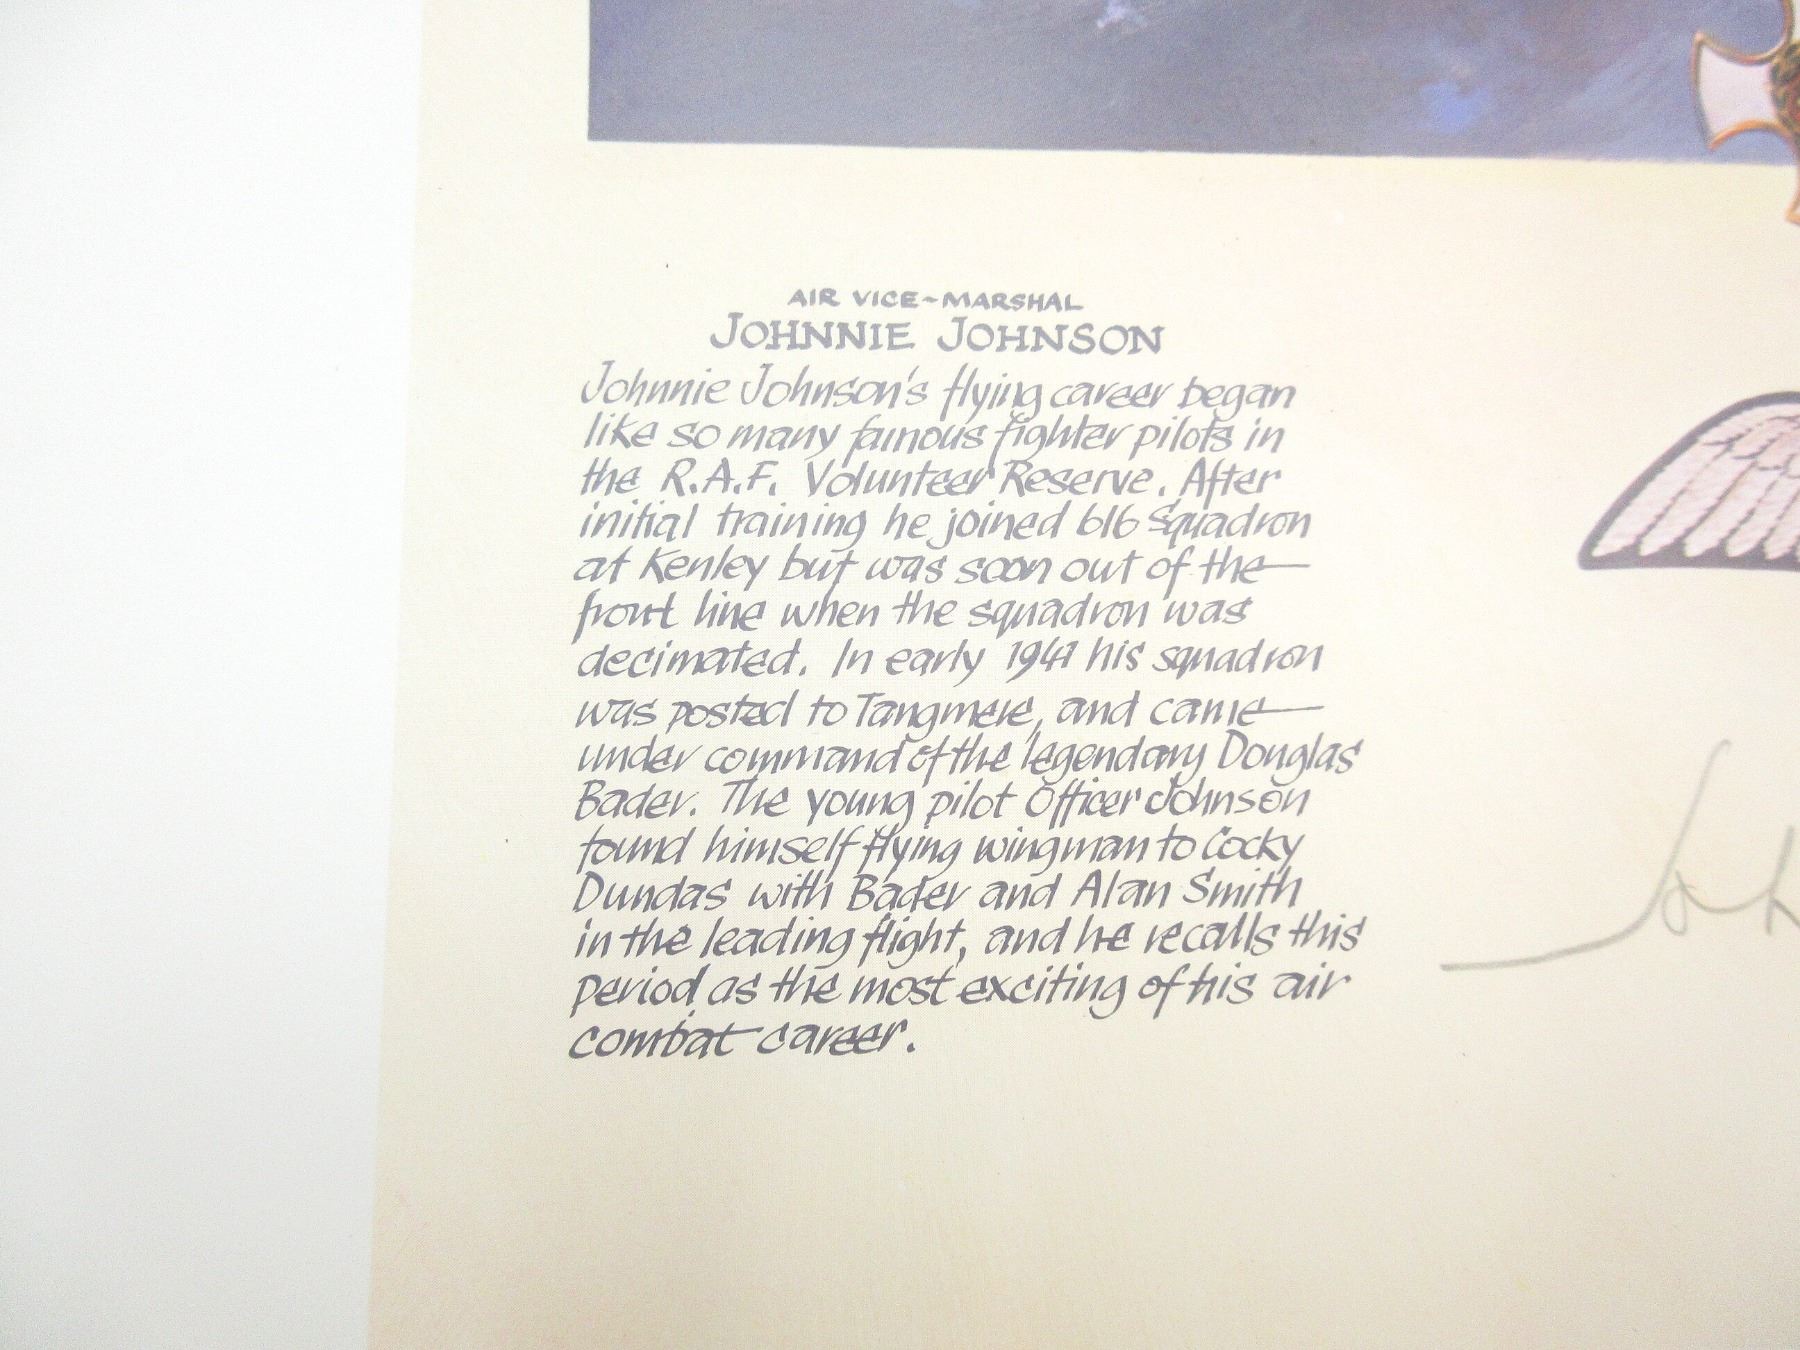 AIR VICE-MARSHAL
JOHNNIE JOHNSON
Johnnie Johnson's flying career began
like so many famous fighter pilots in
the R.A.F. Volunteer Reserve. After
initial training he joined 616 Squadron
at Kenley but was soon out of the
front line when the squadron was
decimated. In early 1941 his squadron
was posted to Tangmere, and came
under command of the legendary Douglas
Bader. The young pilot Officer Johnson
found himself flying wingman to Cocky
Dundas with Bader and Alan Smith
in the leading flight, and he recalls this
period as the most exciting of his air
combat career.